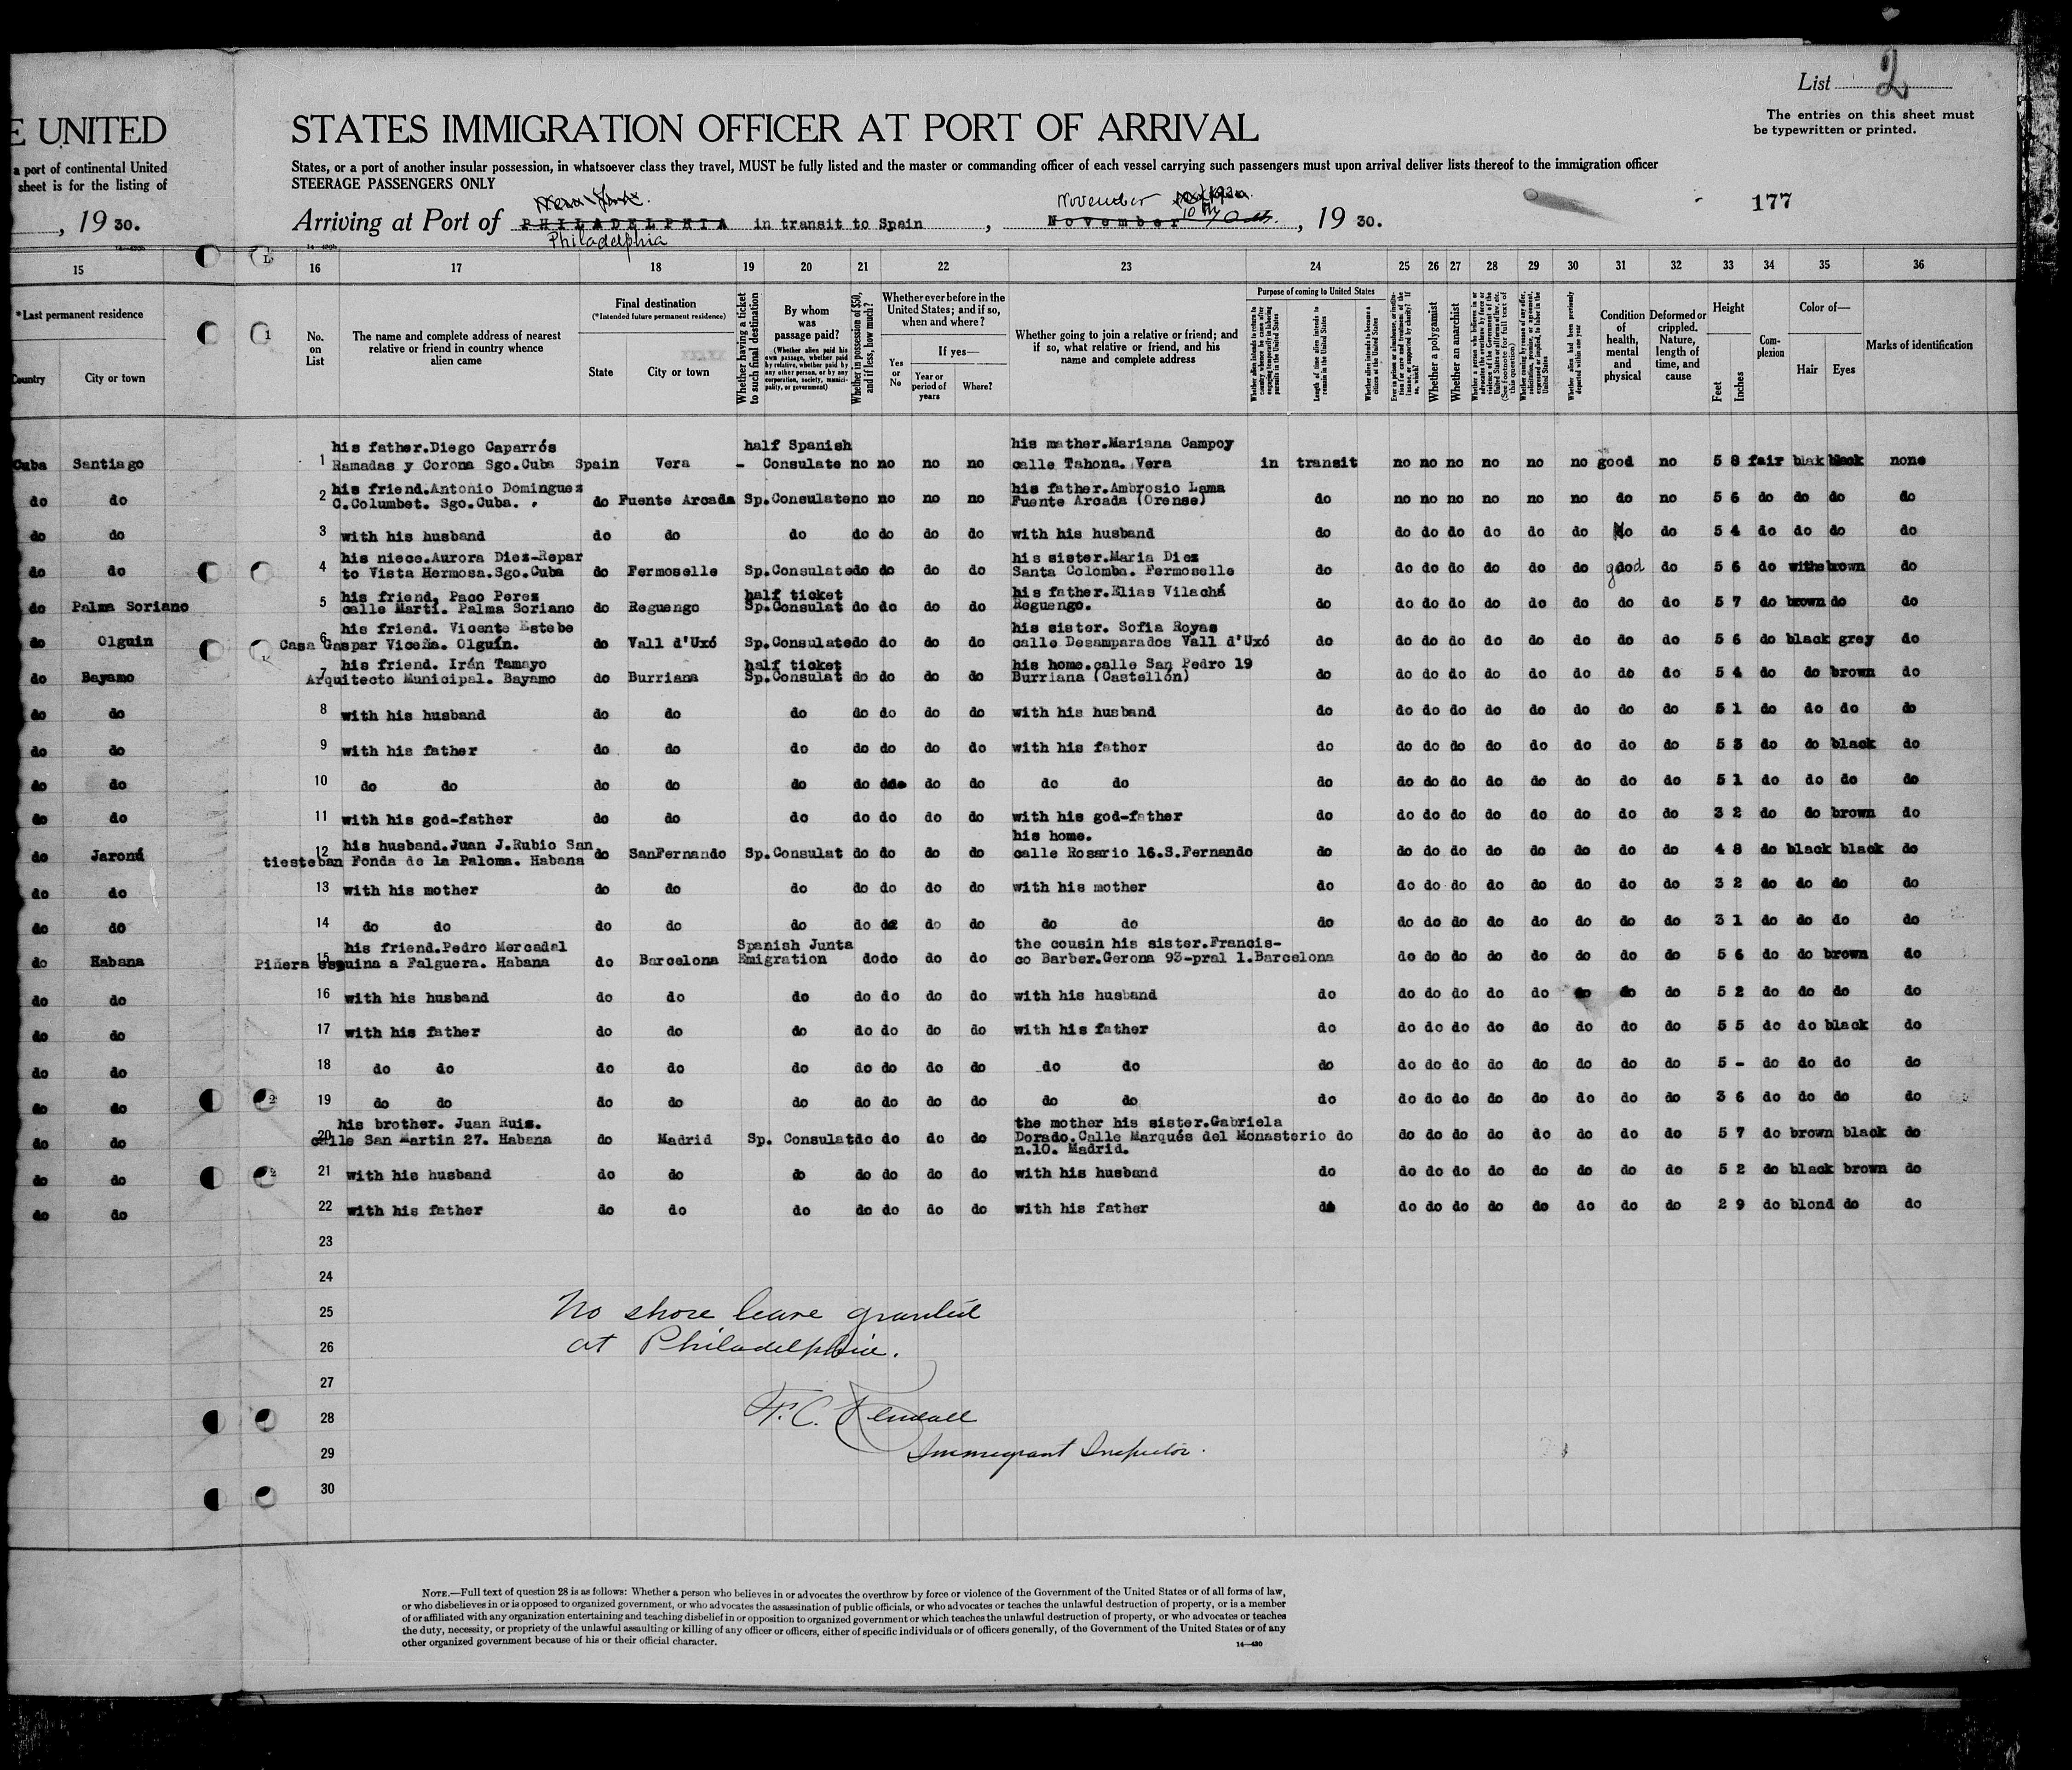 List 2
The entries on this sheet must
be typewritten or printed.
E UNITED
STATES IMMIGRATION OFFICER AT PORT OF ARRIVAL
a port of continental United
sheet is for the listing of
States, or a port of another insular possession, in whatsoever class they travel, MUST be fully listed and the master or commanding officer of each vessel carrying such passengers must upon arrival deliver lists thereof to the immigration officer
STEERAGE PASSENGERS ONLY
177
, 19 30.
New York.
November
Arriving at Port of PHILADELPHIA in transit to Spain , November 10 , 19 30.
Philadelphia
15 16 17 18 19 20 21 22 23 24 25 26 27 28 29 30 31 32 33 34 35 36
*Last permanent residence
Country
City or town
No. on List
The name and complete address of nearest relative or friend in country whence alien came
Final destination
(*Intended future permanent residence)
State
City or town
Whether having a ticket to such final destination
By whom was passage paid?
(Whether alien paid his own passage, whether paid by relative, whether paid by any other person, or by any corporation, society, municipality, or government)
Whether in possession of $50, and if less, how much?
Whether ever before in the United States; and if so, when and where?
Yes or No
If yes—
Year or period of years
Where?
Whether going to join a relative or friend; and if so, what relative or friend, and his name and complete address
Purpose of coming to United States
Whether alien intends to return to country whence he came after engaging temporarily in laboring pursuits in the United States
Length of time alien intends to remain in the United States
Whether alien intends to become a citizen of the United States
Whether a polygamist
Whether an anarchist
(See footnote for full text of this question)
Whether alien had been previously deported within one year
Condition of health, mental and physical
Deformed or crippled. Nature, length of time, and cause
Height
Feet
Inches
Complexion
Color of—
Hair
Eyes
Marks of identification
his father.Diego Caparrós half Spanish his mather.Mariana Campoy
Cuba Santiago 1 Ramadas y Corona Sgo.Cuba Spain Vera - Consulate no no no no calle Tahona. Vera in transit no no no no no no good no 5 8 fair blak black none
his friend.Antonio Dominguez his father.Ambrosio Lama
do do 2 C.Columbet. Sgo.Cuba. do Fuente Arcada Sp.Consulate no no no no Fuente Arcada (Orense) do no no no no no no do no 5 6 do do do do
do do 3 with his husband do do do do do do do with his husband do do do do do do do do do 5 4 do do do do
his niece.Aurora Diez-Repar his sister.Maria Diez
do do 4 to Vista Hermosa.Sgo.Cuba do Fermoselle Sp.Consulate do do do do Santa Colomba. Fermoselle do do do do do do do good do 5 6 do withe brown do
his friend, Paco Perez half ticket his father.Elias Vilachá
do Palma Soriano 5 calle Marti. Palma Soriano do Reguengo Sp.Consulat do do do do Reguengo. do do do do do do do do do 5 7 do brown do do
his friend. Vicente Estebe his sister. Sofia Royas
do Olguin 6 Casa Gaspar Viceña. Olguín. do Vall d'Uxó Sp.Consulate do do do do calle Desamparados Vall d'Uxó do do do do do do do do do 5 6 do black grey do
his friend. Irán Tamayo half ticket his home.calle San Pedro 19
do Bayamo 7 Arquitecto Municipal. Bayamo do Burriana Sp.Consulat do do do do Burriana (Castellón) do do do do do do do do do 5 4 do do brown do
do do 8 with his husband do do do do do do do with his husband do do do do do do do do do 5 1 do do do do
do do 9 with his father do do do do do do do with his father do do do do do do do do do 5 3 do do black do
do do 10 do do do do do do do do do do do do do do do do do do do do 5 1 do do do do
do do 11 with his god-father do do do do do do do with his god-father do do do do do do do do do 3 2 do do brown do
his husband.Juan J.Rubio San his home.
do Jaronú 12 tiesteban Fonda de la Paloma. Habana do SanFernando Sp.Consulat do do do do calle Rosario 16.S.Fernando do do do do do do do do do 4 8 do black black do
do do 13 with his mother do do do do do do do with his mother do do do do do do do do do 3 2 do do do do
do do 14 do do do do do do do do do do do do do do do do do do do do 3 1 do do do do
his friend.Pedro Mercadal Spanish Junta the cousin his sister.Francis-
do Habana 15 Piñera esquina a Falguera. Habana do Barcelona Emigration do do do do co Barber.Gerona 93-pral 1.Barcelona do do do do do do do do 5 6 do do brown do
do do 16 with his husband do do do do do do do with his husband do do do do do do do do do 5 2 do do do do
do do 17 with his father do do do do do do do with his father do do do do do do do do do 5 5 do do black do
do do 18 do do do do do do do do do do do do do do do do do do do do 5 - do do do do
do do 19 do do do do do do do do do do do do do do do do do do do do 3 6 do do do do
his brother. Juan Ruiz. the mother his sister.Gabriela
do do 20 calle San Martin 27. Habana do Madrid Sp. Consulat do do do do Dorado.Calle Marqués del Monasterio do do do do do do do do do 5 7 do brown black do
n.10. Madrid.
do do 21 with his husband do do do do do do do with his husband do do do do do do do do do 5 2 do black brown do
do do 22 with his father do do do do do do do with his father do do do do do do do do do 2 9 do blond do do
23
24
25
26
27
28
29
30
No shore leave granted
at Philadelphia.
F. C. Kendall
Immigrant Inspector.
NOTE.—Full text of question 28 is as follows: Whether a person who believes in or advocates the overthrow by force or violence of the Government of the United States or of all forms of law,
or who disbelieves in or is opposed to organized government, or who advocates the assassination of public officials, or who advocates or teaches the unlawful destruction of property, or is a member
of or affiliated with any organization entertaining and teaching disbelief in or opposition to organized government or which teaches the unlawful destruction of property, or who advocates or teaches
the duty, necessity, or propriety of the unlawful assaulting or killing of any officer or officers, either of specific individuals or of officers generally, of the Government of the United States or of any
other organized government because of his or their official character.
14—430